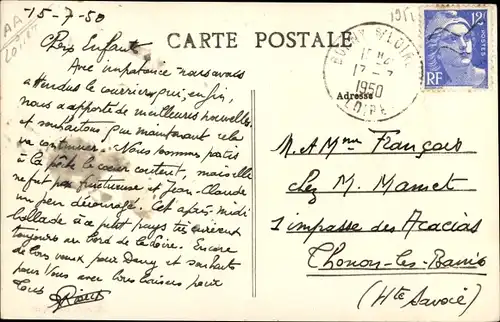 15-7-50
AA
LOIRET
CARTE POSTALE
Chers Enfants
Avec impatience nous avons
attendus le courrier qui, enfin,
nous a apporté de meilleures nouvelles
et souhaitons que maintenant cela
va continuer. Nous sommes partis
à la pêche le coeur content, mais elle
ne fut pas fructueuse et Jean-Claude
un peu découragé. Cet après-midi
ballade à ce petit pays très curieux
toujours au bord de la Loire. Encore
de bons voeux pour Dany et souhaits
pour Vous avec bons baisers pour
tous
1950
12F
POSTES
RF
S/LOIRE
17-7
1950
LOIRET
Adresse
M. et Mme François
chez M. Mamet
1 impasse des Acacias
Thonon-les-Bains
(Hte Savoie)